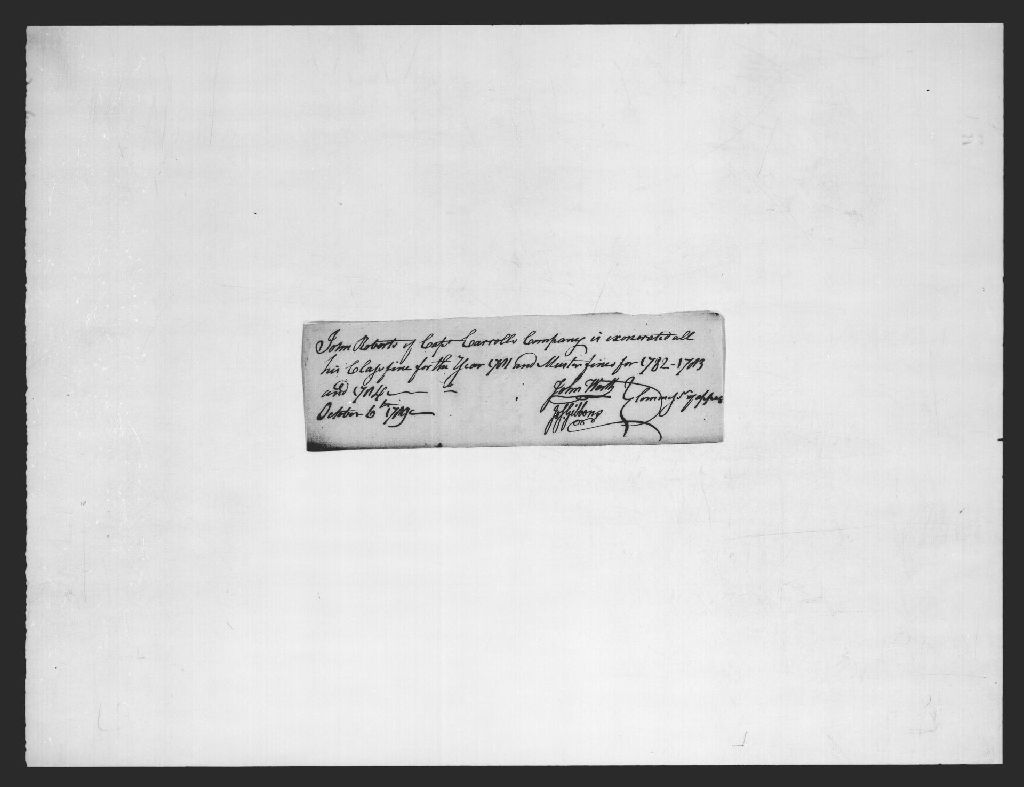 John Roberts of Capt Carrolls Company is exonerated all
his Class fine for the Year 1781 and Muster fines for 1782-1783
and 1784
October 6th 1789
John Worth
Gibbons
Commrs of appeal